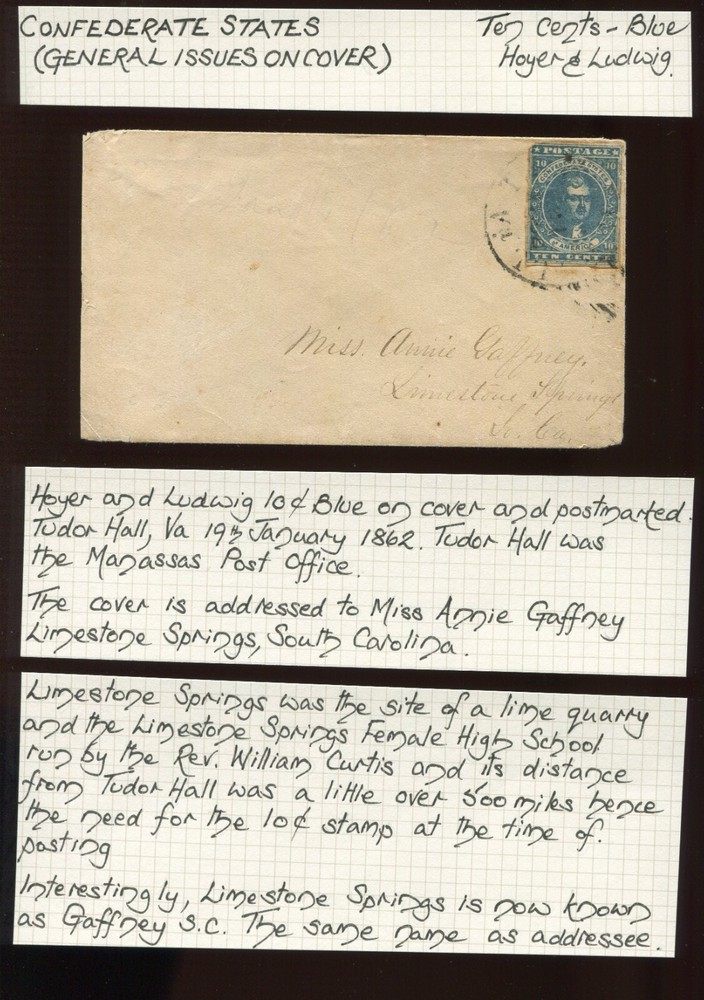 CONFEDERATE STATES
(GENERAL ISSUES ON COVER)
Ten Cents - Blue
Hoyer & Ludwig.
POSTAGE
10 10
CONFEDERATE STATES
OF AMERICA
10 10
TEN CENTS
VA
Miss. Annie Gaffney.
Limestone Springs
So. Ca.
Hoyer and Ludwig 10¢ Blue on cover and postmarked.
Tudor Hall, Va 19th January 1862. Tudor Hall was
the Manassas Post Office.
The cover is addressed to Miss Annie Gaffney
Limestone Springs, South Carolina.
Limestone Springs was the site of a lime quarry
and the Limestone Springs Female High School
run by the Rev. William Curtis and its distance
from Tudor Hall was a little over 500 miles hence
the need for the 10¢ stamp at the time of.
posting
Interestingly, Limestone Springs is now known
as Gaffney S.C. The same name as addressee.